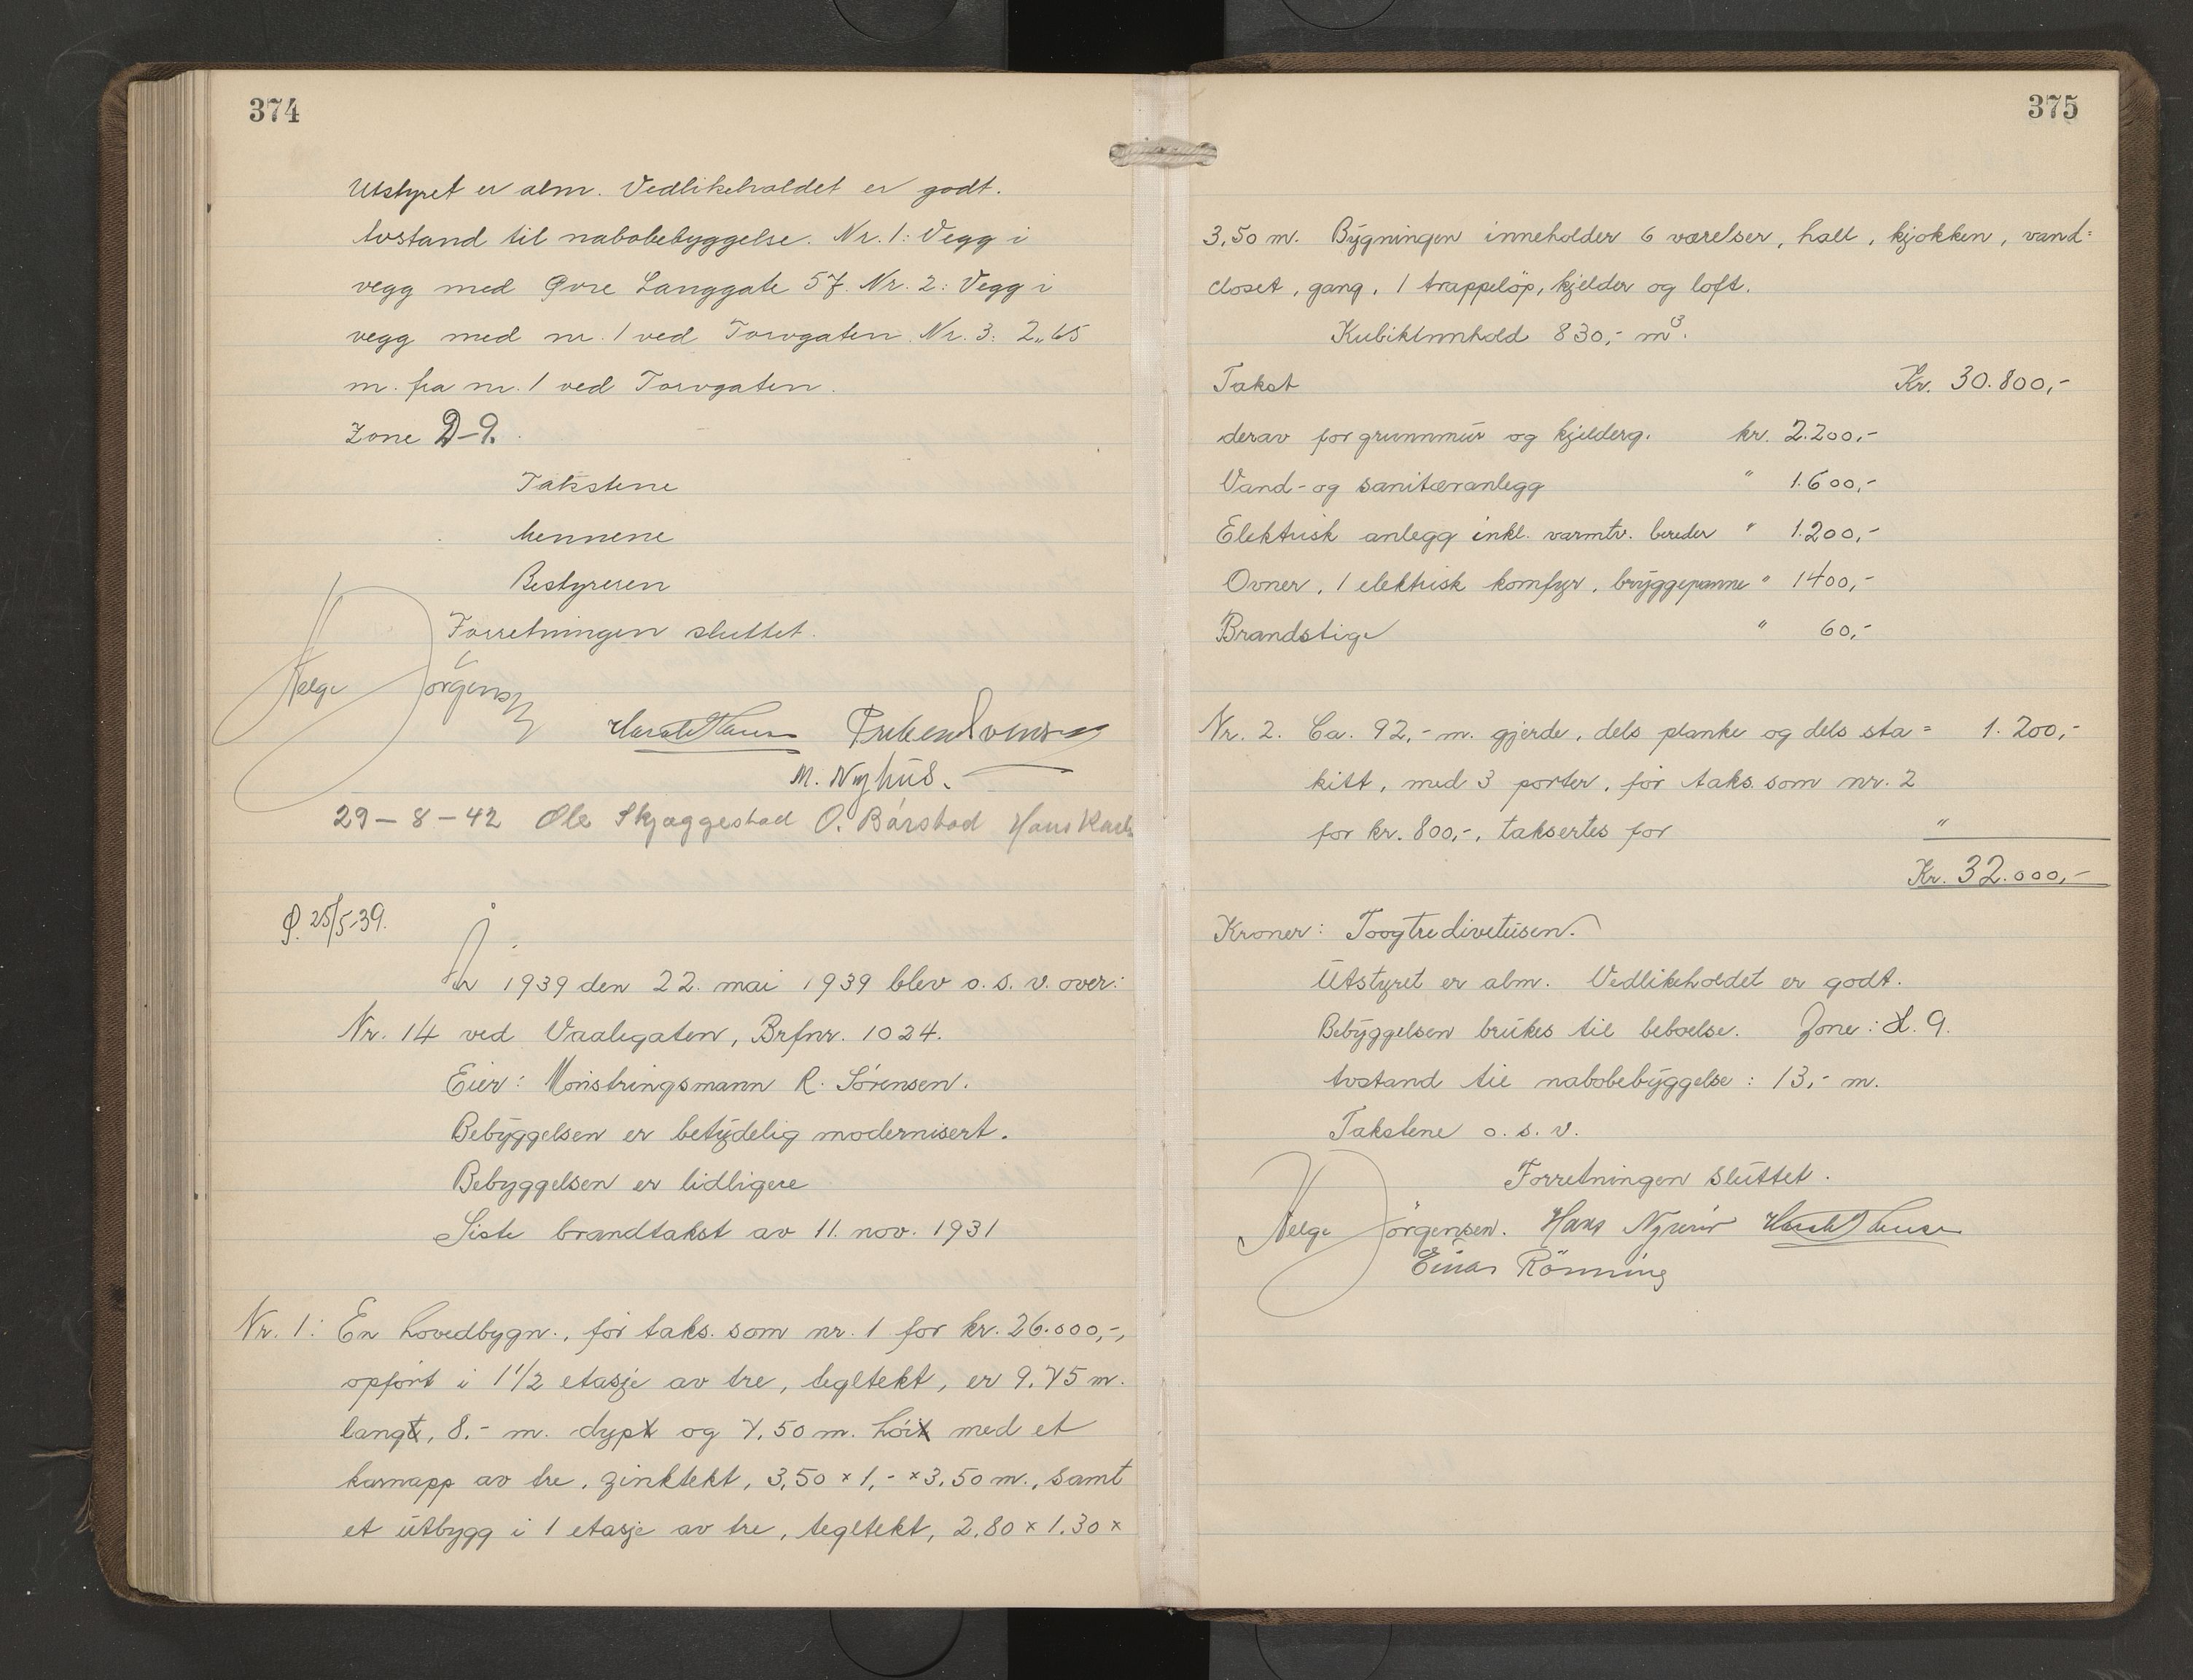 374
Utstyret er alm. Vedlikeholdet er godt.
Avstand til nabobebyggelse. Nr. 1: Vegg i
vegg med Øvre Langgate 57. Nr. 2: Vegg i
vegg med nr. 1 ved Torvgaten. Nr. 3: 2,65
m. fra nr. 1 ved Torvgaten.
Zone D-9.
Takstene
Mennene
Bestyreren
Forretningen sluttet.
Helge Jörgensen
M. Nyhus.
29-8-42 Ole Skjæggestad O. Bårstad Hans
P. 25/5-39.
År 1939 den 22. mai 1939 blev o. s. v. over:
Nr. 14 ved Vaalegaten, Brfnr. 1024.
Eier: Mönstringsmann R. Sörensen.
Bebyggelsen er betydelig modernisert.
Bebyggelsen er lidligere
Siste brandtakst av 11. nov. 1931
Nr. 1: En hovedbygn., för taks. som nr. 1 for kr. 26.000,-,
opfört i 1 1/2 etasje av tre, tegltekt, er 9.75 m.
langt, 8.- m. dypt og 7.50 m. höit med et
karnapp av tre, zinktekt, 3,50 x 1,- x 3,50 m., samt
et utbygg i 1 etasje av tre, tegltekt, 2.80 x 1.30 x
375
3,50 m. Bygningen inneholder 6 værelser, hall, kjökken, vand=
closet, gang, 1 trappelöp, kjelder og loft.
Kubikinnhold 830,- m3.
Takst Kr. 30.800,-
derav for grunnmur og kjelderg. kr. 2.200,-
Vand- og sanitæranlegg " 1.600,-
Elektrisk anlegg inkl. varmtv. bereder " 1.200,-
Ovner, 1 elektrisk komfyr, bryggepanne " 1400,-
Brandstige " 60,-
Nr. 2. Ca. 92,- m. gjerde, dels planke og dels sta= 1.200,-
kitt, med 3 porter, för taks. som nr. 2
for kr. 800,-, taksertes for "
Kr. 32.000,-
Kroner: Toogtredivetusen.
Utstyret er alm. Vedlikeholdet er godt.
Bebyggelsen brukes til beboelse. Zone: d. 9.
Avstand til nabobebyggelse: 13,- m.
Takstene o. s. v.
Forretningen sluttet.
Helge Jörgensen. Hans
Einar Rönning